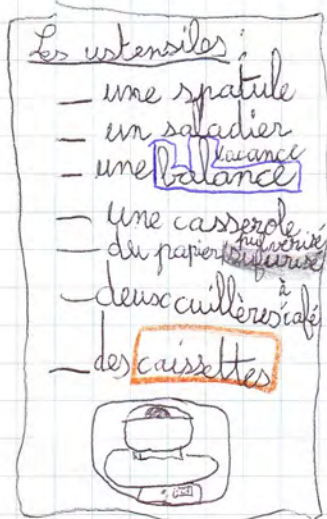 Les ustensiles :
— une spatule
— un saladier
— une balance
— une casserole
— du papier sulfurisé
— deux cuillères à café
— des caissettes